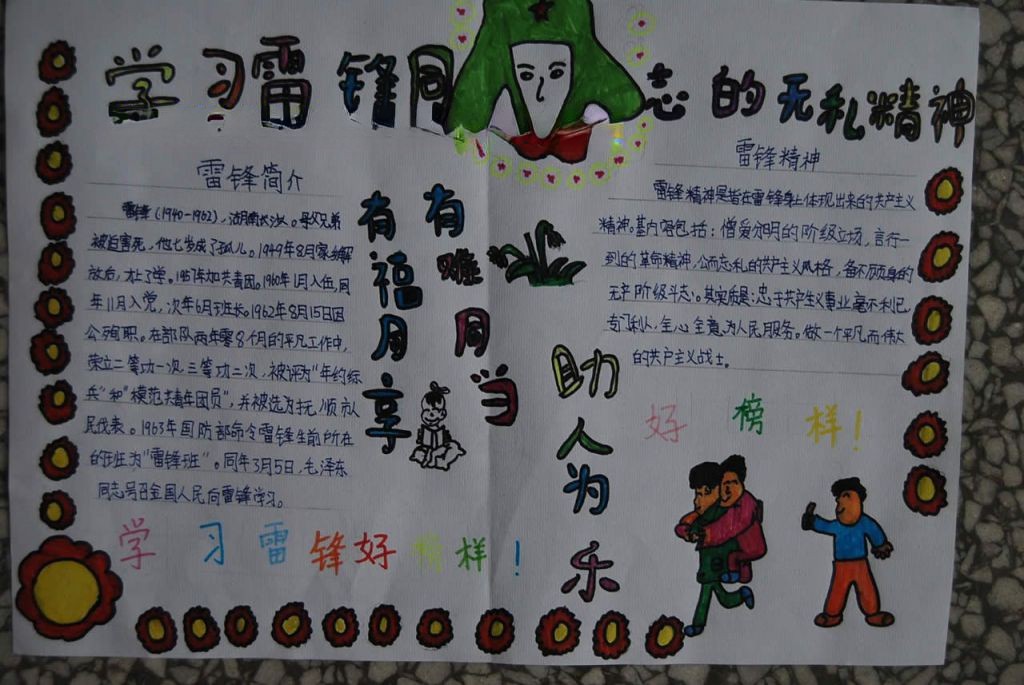 学习雷锋同志的无私精神
雷锋简介
雷锋(1940-1962),湖南长沙。母父兄弟
被迫害死,他七岁成了孤儿。1949年8月家乡解
放后,上了学。1957年加共青团。1960年1月入伍,同
年11月入党,次年6月班长。1962年8月15日因
公殉职。在部队两年零8个月的平凡工作中,
荣立二等功一次,三等功二次,被评为"年约标
兵"和"模范共青年团员",并被选为抚顺市人
民代表。1963年国防部命令雷锋生前所在
的班为"雷锋班"。同年3月5日,毛泽东
同志号召全国人民向雷锋学习。
学习雷锋好榜样!
有福同享
有难同当
助人为乐
雷锋精神
雷锋精神是指在雷锋身上体现出来的共产主义
精神。其内容包括:憎爱分明的阶级立场,言行一
到的革命精神,公而忘私的共产主义风格,奋不顾身的
无产阶级斗志。其实质是:忠于共产主义事业毫不利己,
专门利人,全心全意为人民服务。做一个平凡而伟大
的共产主义战士。
好榜样!